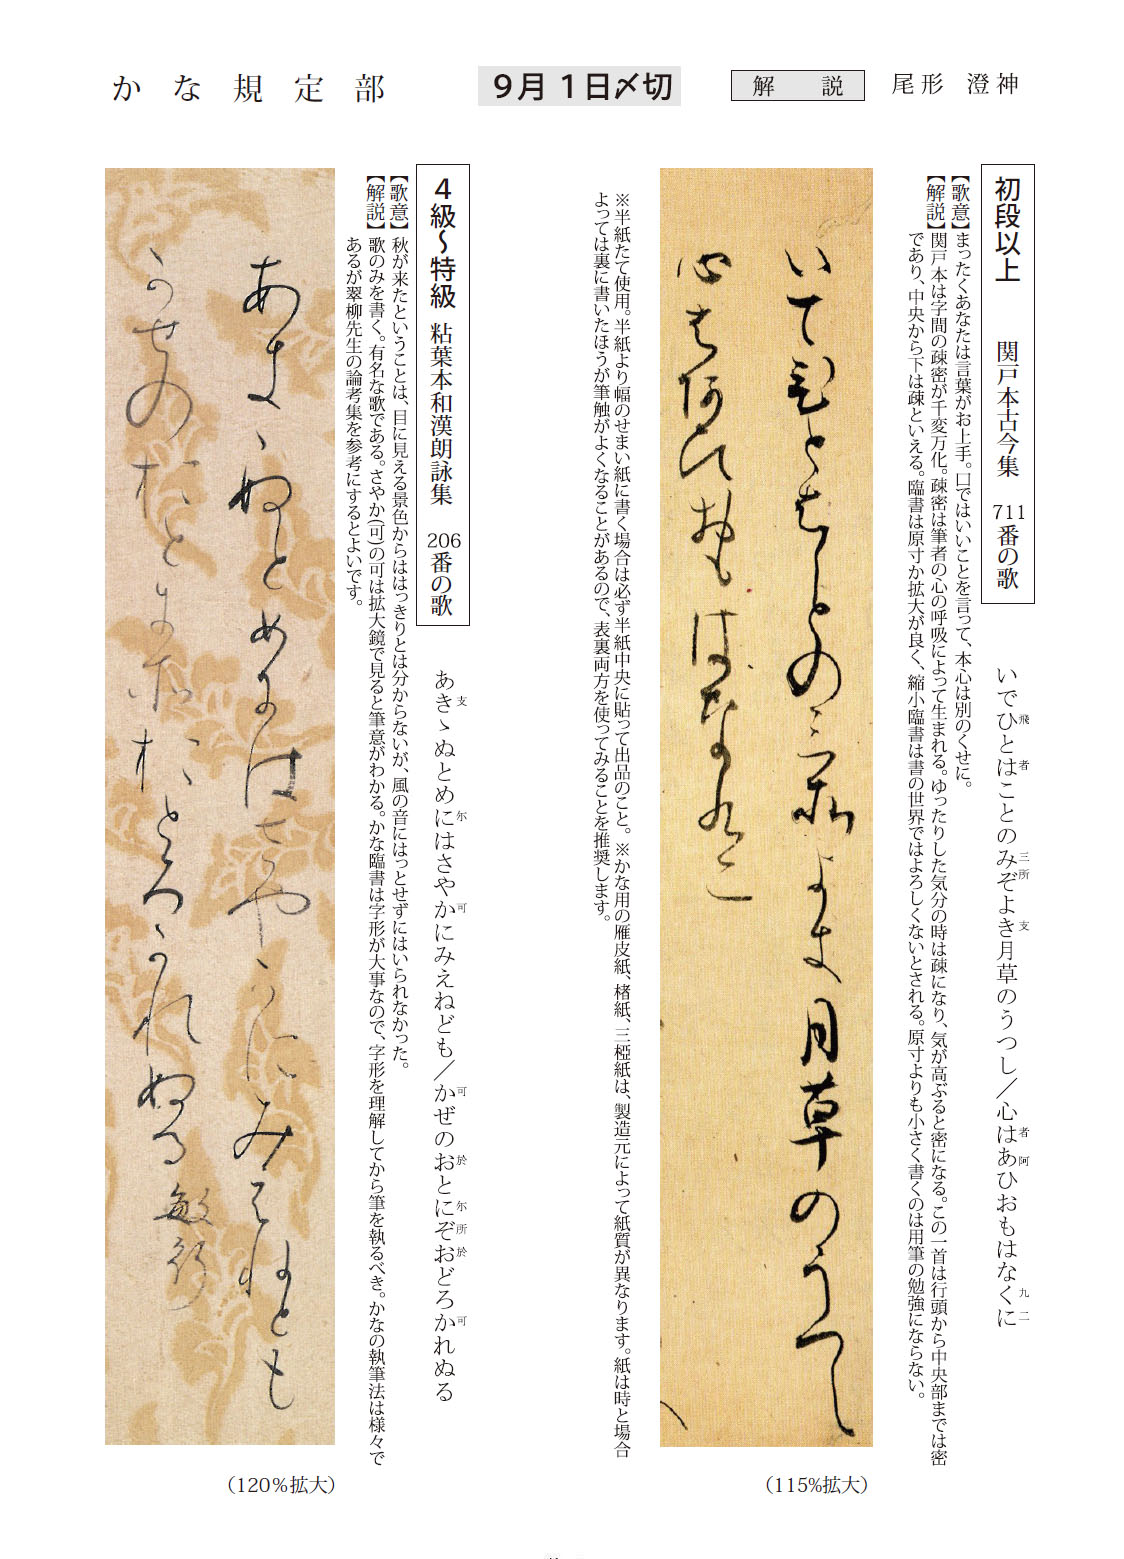 かな規定部
９月１日〆切
解説
尾形 澄神
初段以上 関戸本古今集 711番の歌
いでひとはことのみぞよき月草のうつし／心はあひおもはなくに
飛 者 三 所 支 者 阿 九 二
【歌意】まったくあなたは言葉がお上手。口ではいいことを言って、本心は別のくせに。
【解説】関戸本は字間の疎密が千変万化。疎密は筆者の心の呼吸によって生まれる。ゆったりした気分の時は疎になり、気が高ぶると密になる。この一首は行頭から中央部までは密
であり、中央から下は疎といえる。臨書は原寸か拡大が良く、縮小臨書は書の世界ではよろしくないとされる。原寸よりも小さく書くのは用筆の勉強にならない。
いて飛とはことの三所よき月草のうつし
心は阿ひおもはなくに
（115%拡大）
※半紙たて使用。半紙より幅のせまい紙に書く場合は必ず半紙中央に貼って出品のこと。※かな用の雁皮紙、楮紙、三椏紙は、製造元によって紙質が異なります。紙は時と場合
よっては裏に書いたほうが筆触がよくなることがあるので、表裏両方を使ってみることを推奨します。
４級〜特級 粘葉本和漢朗詠集 206番の歌
あきゝぬとめにはさやかにみえねども／かぜのおとにぞおどろかれぬる
支 尓 可 可 於 尓 所 於 可
【歌意】秋が来たということは、目に見える景色からははっきりとは分からないが、風の音にはっとせずにはいられなかった。
【解説】歌のみを書く。有名な歌である。さやか(可)の可は拡大鏡で見ると筆意がわかる。かな臨書は字形が大事なので、字形を理解してから筆を執るべき。かなの執筆法は様々で
あるが翠柳先生の論考集を参考にするとよいです。
あきゝぬとめにはさやかにみえねとも
かせのおとに所おとろかれぬる 敏行
（120%拡大）